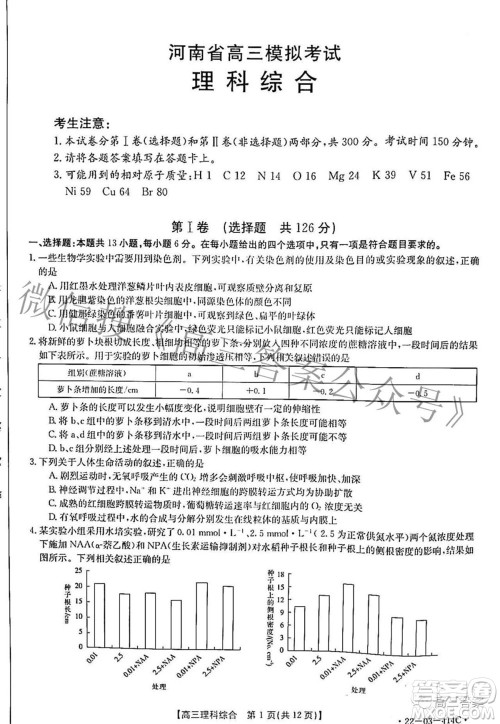 河南省高三模拟考试
理科综合
考生注意:
1.本试卷分第Ⅰ卷(选择题)和第Ⅱ卷(非选择题)两部分,共300分。考试时间150分钟。
2.请将各题答案填写在答题卡上。
3.可能用到的相对原子质量:H 1 C 12 N 14 O 16 Mg 24 K 39 V 51 Fe 56
Ni 59 Cu 64 Br 80
第Ⅰ卷 (选择题 共126分)
一、选择题:本题共13小题,每小题6分。在每小题给出的四个选项中,只有一项是符合题目要求的。
1.一些生物学实验中需要用到染色剂。下列实验中有关染色剂的使用及目的或实验现象的叙述,正确的是
A.用红墨水处理洋葱鳞片叶内表皮细胞,可观察
B.用龙胆紫染色的洋葱根尖细胞,可观察
C.用
绿色荧光的番薯叶片细胞,可观察
D.小鼠细胞与人细胞融合实验中,绿色荧光、红色荧光只标记人细胞
2.将新鲜的萝卜条均分为4组,分别放入不同浓度的蔗糖溶液中,一段时间后的结果
如下表所示。若用于实验的细胞的初始渗透压相等,下列叙述错误的是
组别(蔗糖溶液) a b c d
萝卜条增加的长度/cm −0.4 +0.1 −0.2 −0.5
A.萝卜条的长度可发生小幅度变化,说明细胞壁有一定的伸缩性
B.将b、c组中的萝卜条移到清水中,一段时间后两组萝卜条长度相等
C.将a、c组中的萝卜条移到清水中,一段时间后a组萝卜条吸水更多
D.b、c组中的萝卜条细胞,一段时间后b组萝卜条的吸水能力更强
3.下列关于人体生命活动的叙述,正确的是
A.剧烈运动时,无氧呼吸产生的CO2增多会刺激呼吸中枢,使呼吸加快
B.神经调节过程中,Na+和K+进出神经细胞的跨膜转运方式不同
C.成熟的红细胞跨膜转运物质时,葡萄糖转运的速度与细胞呼吸强度有关
D.免疫细胞吞噬处理大分子物质时,会发生胞吞且有囊泡和线粒体的参与
4.某实验小组采用水培实验,研究了0.01 mmol·L−1、2.5 mmol·L−1(正常供氮水平)两个氮浓度处理
下施加NAA(α-萘乙酸)和NPA(生长素运输抑制剂)对水稻种子根长和种子根上的侧根密度的影响,结果如
图所示。下列叙述错误的是
种子根长/cm
25
20
15
10
5
0
0.01 2.5 0.01+NAA 2.5+NAA 0.01+NPA 2.5+NPA
处理
20
15
10
5
0
0.01 2.5 0.01+NAA 2.5+NAA 0.01+NPA 2.5+NPA
处理
【高三理科综合 第1页(共12页)】
·22-03-314C·